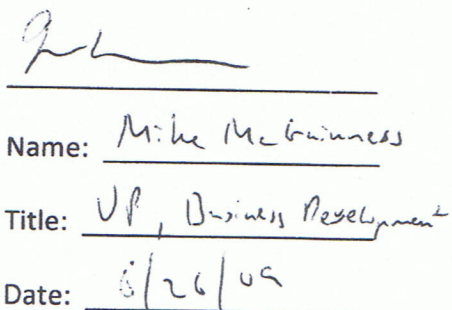 Name: Mike McGuinness
Title: VP, Business Development
Date: /26/09